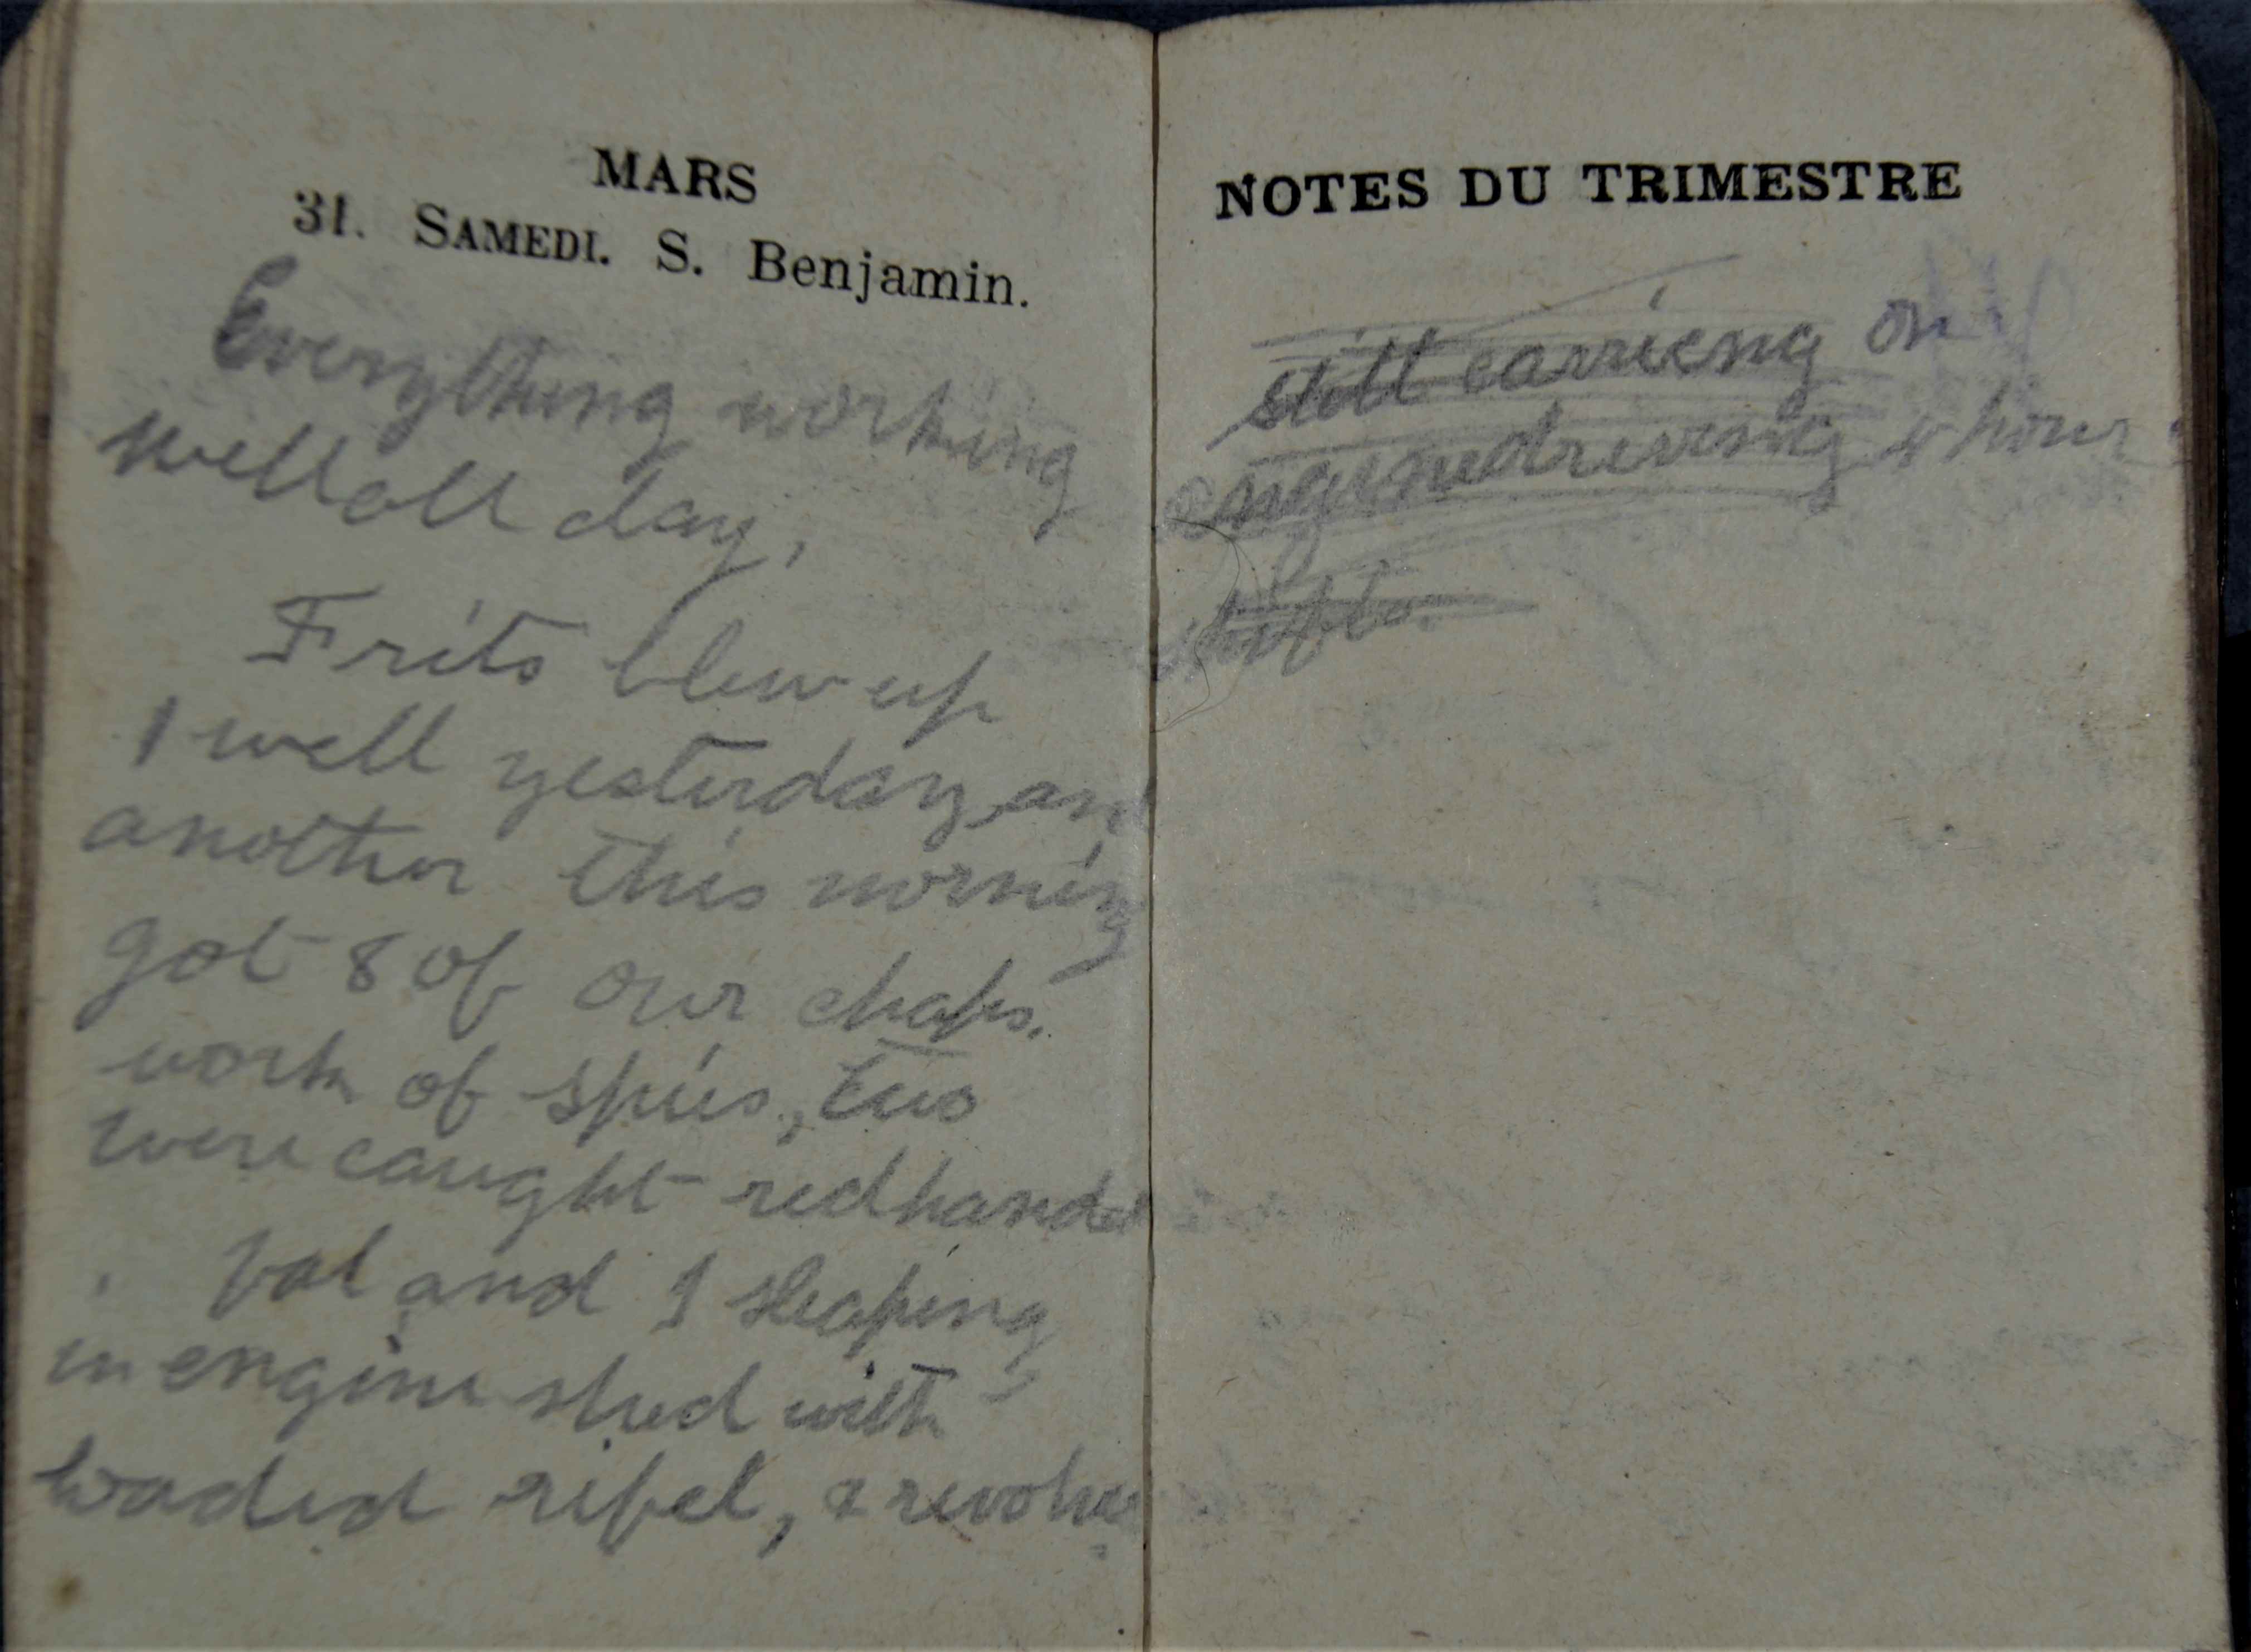 MARS
31. SAMEDI. S. Benjamin.
Everything working
well all day,
Frits blew up
1 well yesterday an
another this morning
got 8 of our chaps.
work of spies, two
were caught redhanded
Val and I sleaping
in engine shed with
loaded rifel, & revolver
NOTES DU TRIMESTRE
still carrieng on
enginedriveing hour
shifts.